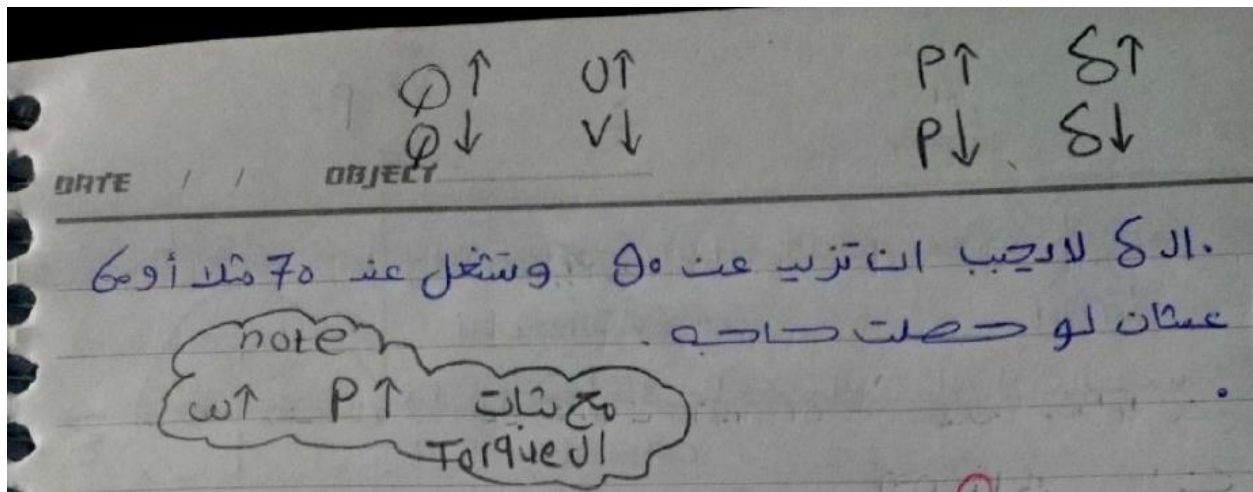 Q↑ U↑ P↑ δ↑
Q↓ V↓ P↓ δ↓
DATE / / OBJECT
.الـ δ لايجب ان تزيد عن وتشتغل عند 70 مثلا أو 60
عشان لو حصلت حاجه .
note
ω↑ P↑ مع ثبات
الـ Torque